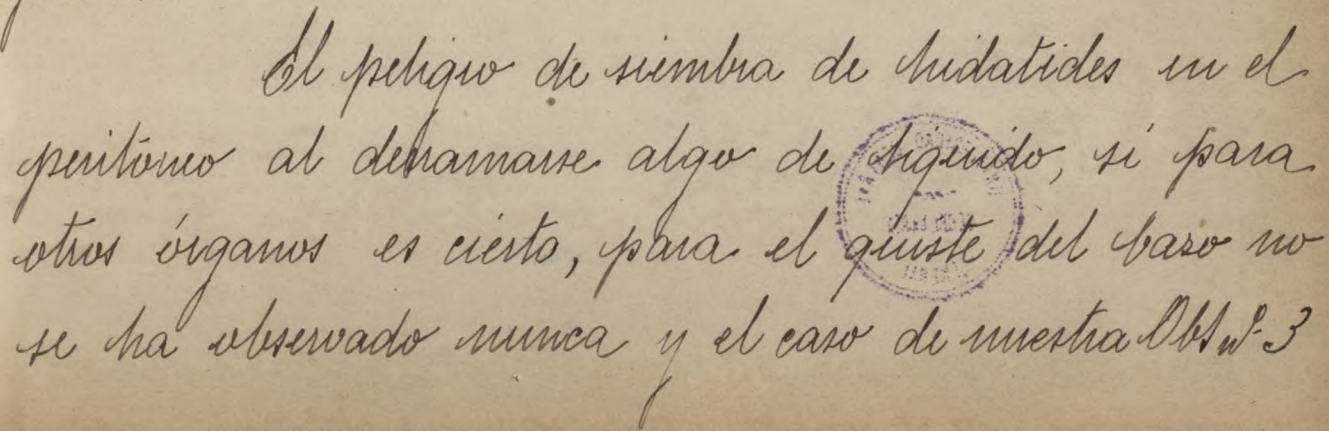 El peligro de siembra de hidatides en el
peritóneo al derramarse algo de liquido, si para
otros órganos es cierto, para el quiste del bazo no
se ha observado nunca y el caso de nuestra Obs nº 3